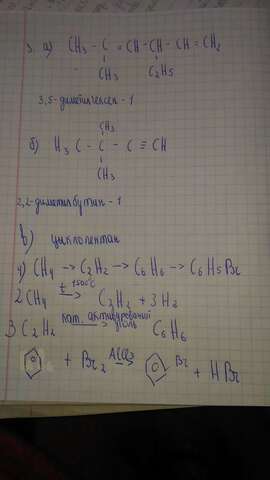 3. а) CH₃ - C = CH - CH - CH = CH₂
CH₃ C₂H₅
3,5-диметилгексен - 1
CH₃
б) H₃C - C - C ≡ CH
CH₃
2,2-диметилбутин - 1
в) циклопентан
4) CH₄ → C₂H₂ → C₆H₆ → C₆H₅Br
2CH₄ t 1500°C → C₂H₂ + 3H₂
3C₂H₂ кат. активированный уголь → C₆H₆
+ Br₂ AlCl₃ → Br + HBr